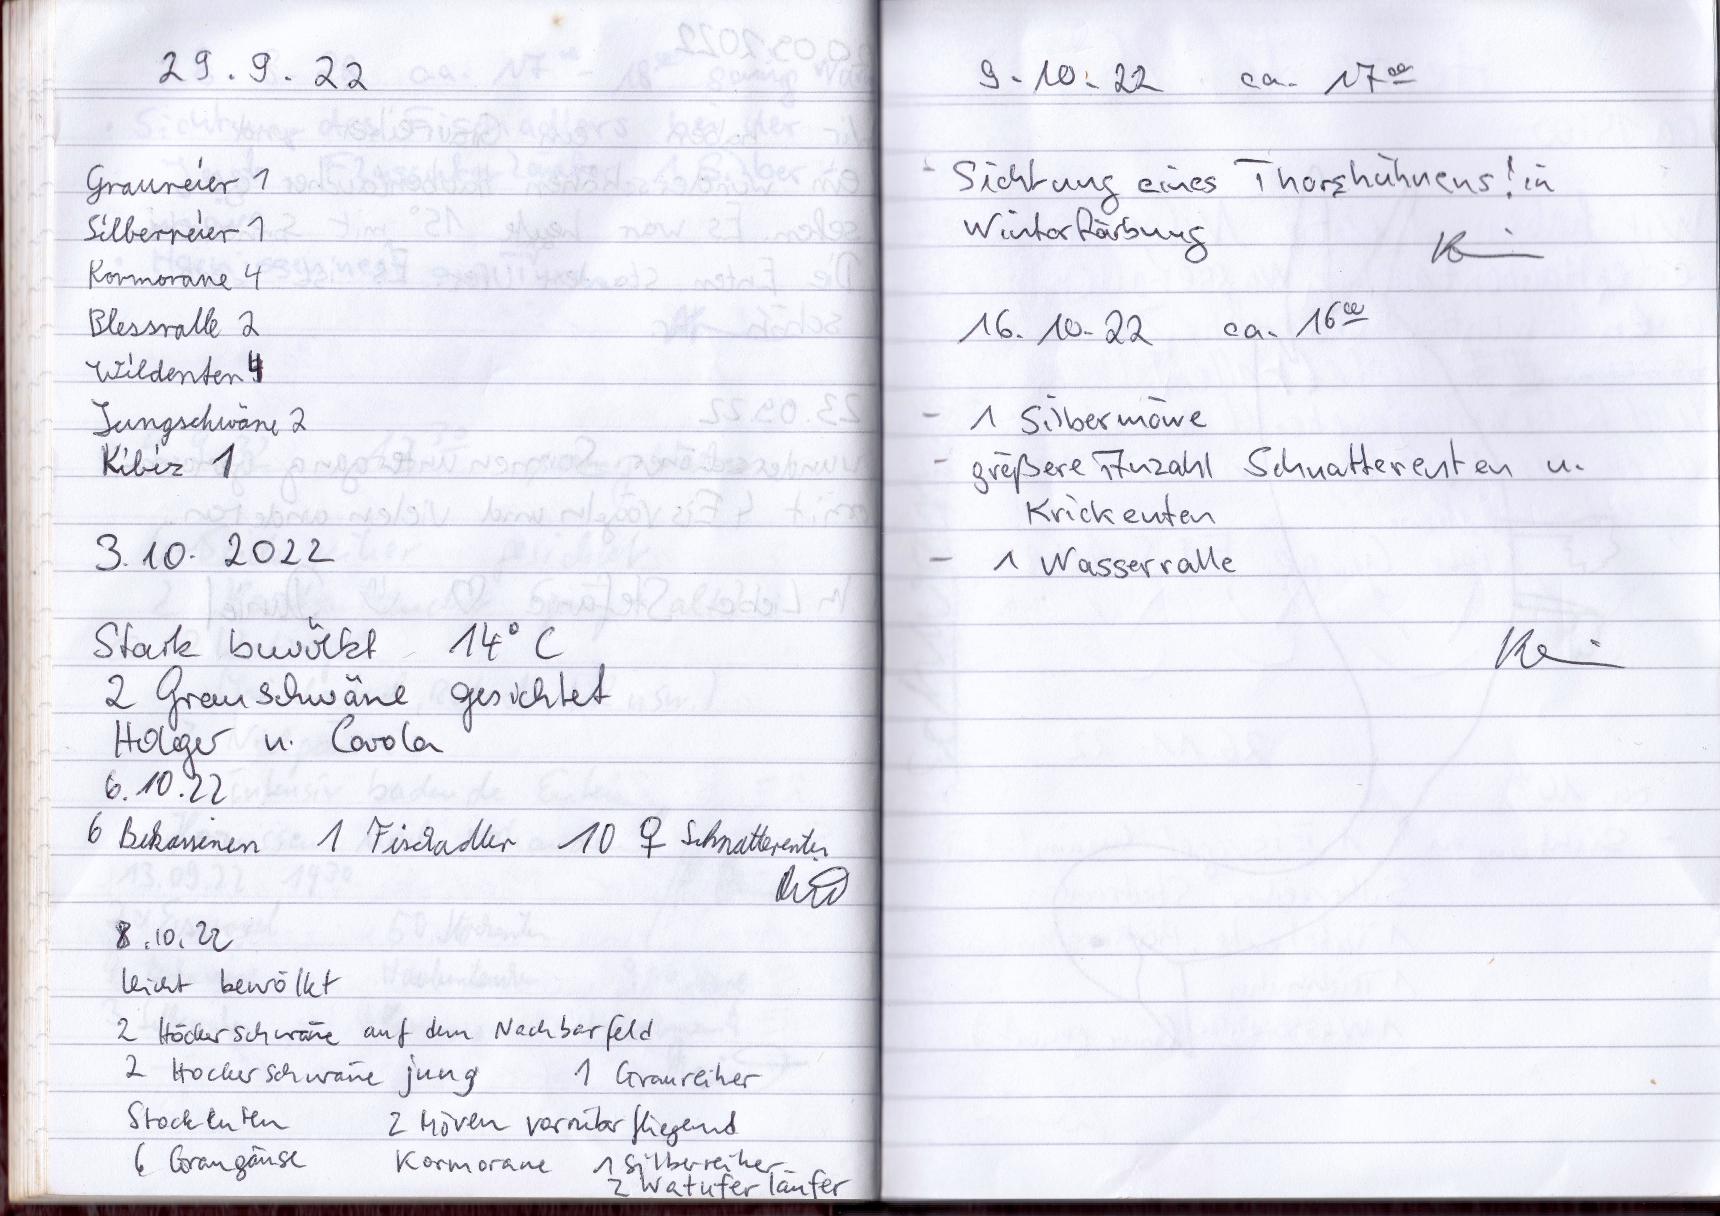 29.9.22
Graureier 1
Silberreier 1
Kormorane 4
Blessralle 2
Wildenten 4
Jungschwäne 2
Kibiz 1
3.10.2022
Stark bewölkt 14° C
2 Grauschwäne gesichtet
Holger u. Carola
6.10.22
6 Bekassinen 1 Fischadler 10 ♀ Schnatterenten
8.10.22
leicht bewölkt
2 Höckerschwäne auf dem Nachbarfeld
2 Höckerschwäne jung 1 Graureiher
Stockenten 2 Möven vorrüberfliegend
6 Graugänse Kormorane 1 Silberreiher
2 Watuferläufer
9.10.22 ca. 17⁰⁰
- Sichtung eines Thorshühnens! in
Winterfärbung
16.10.22 ca. 16⁰⁰
- 1 Silbermöwe
- größere Anzahl Schnatterenten u.
Krickenten
- 1 Wasserralle